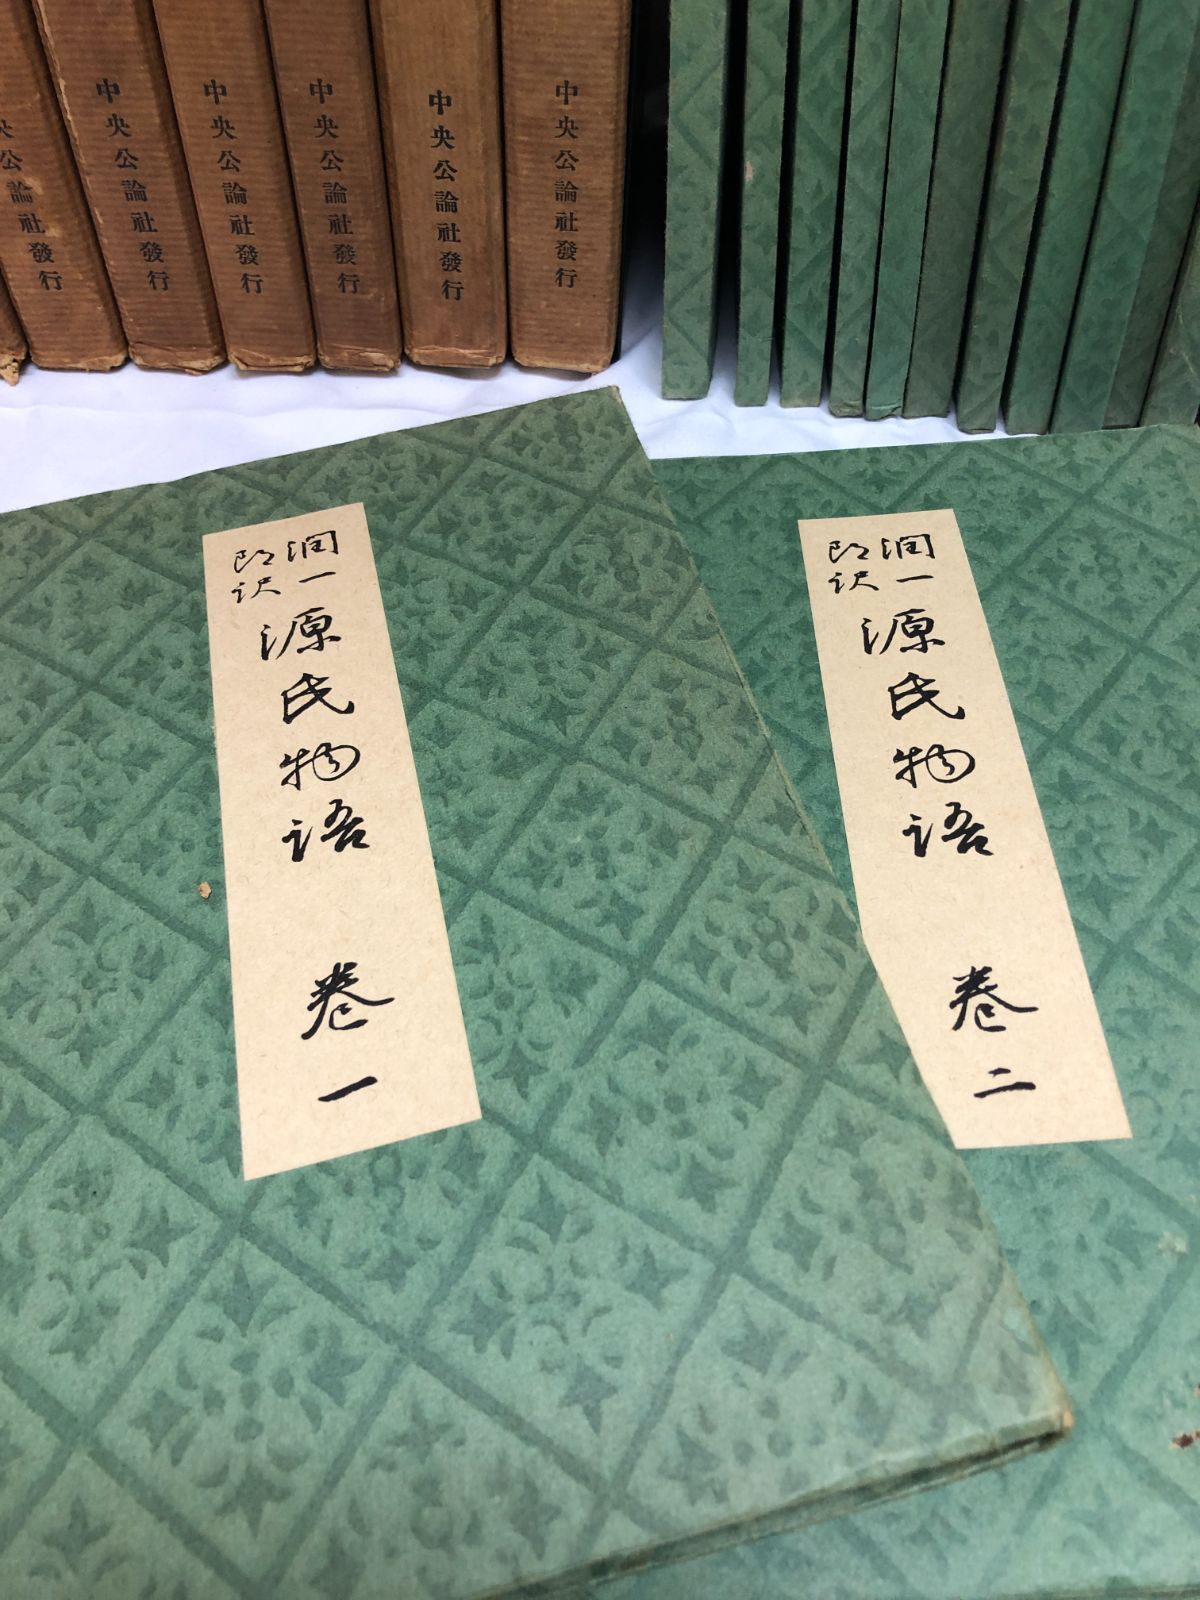 中央公論社發行
中央公論社發行
中央公論社發行
中央公論社發行
中央公論社發行
央公論社發行
潤一郎訳
源氏物語 巻一
潤一郎訳
源氏物語 巻二